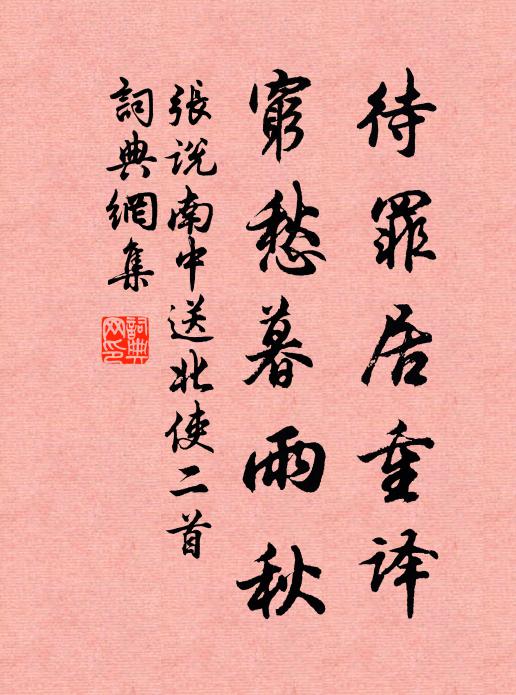 待罪居重译
窮愁暮雨秋
張説南中送北使二首
詞典網集
詞典網印